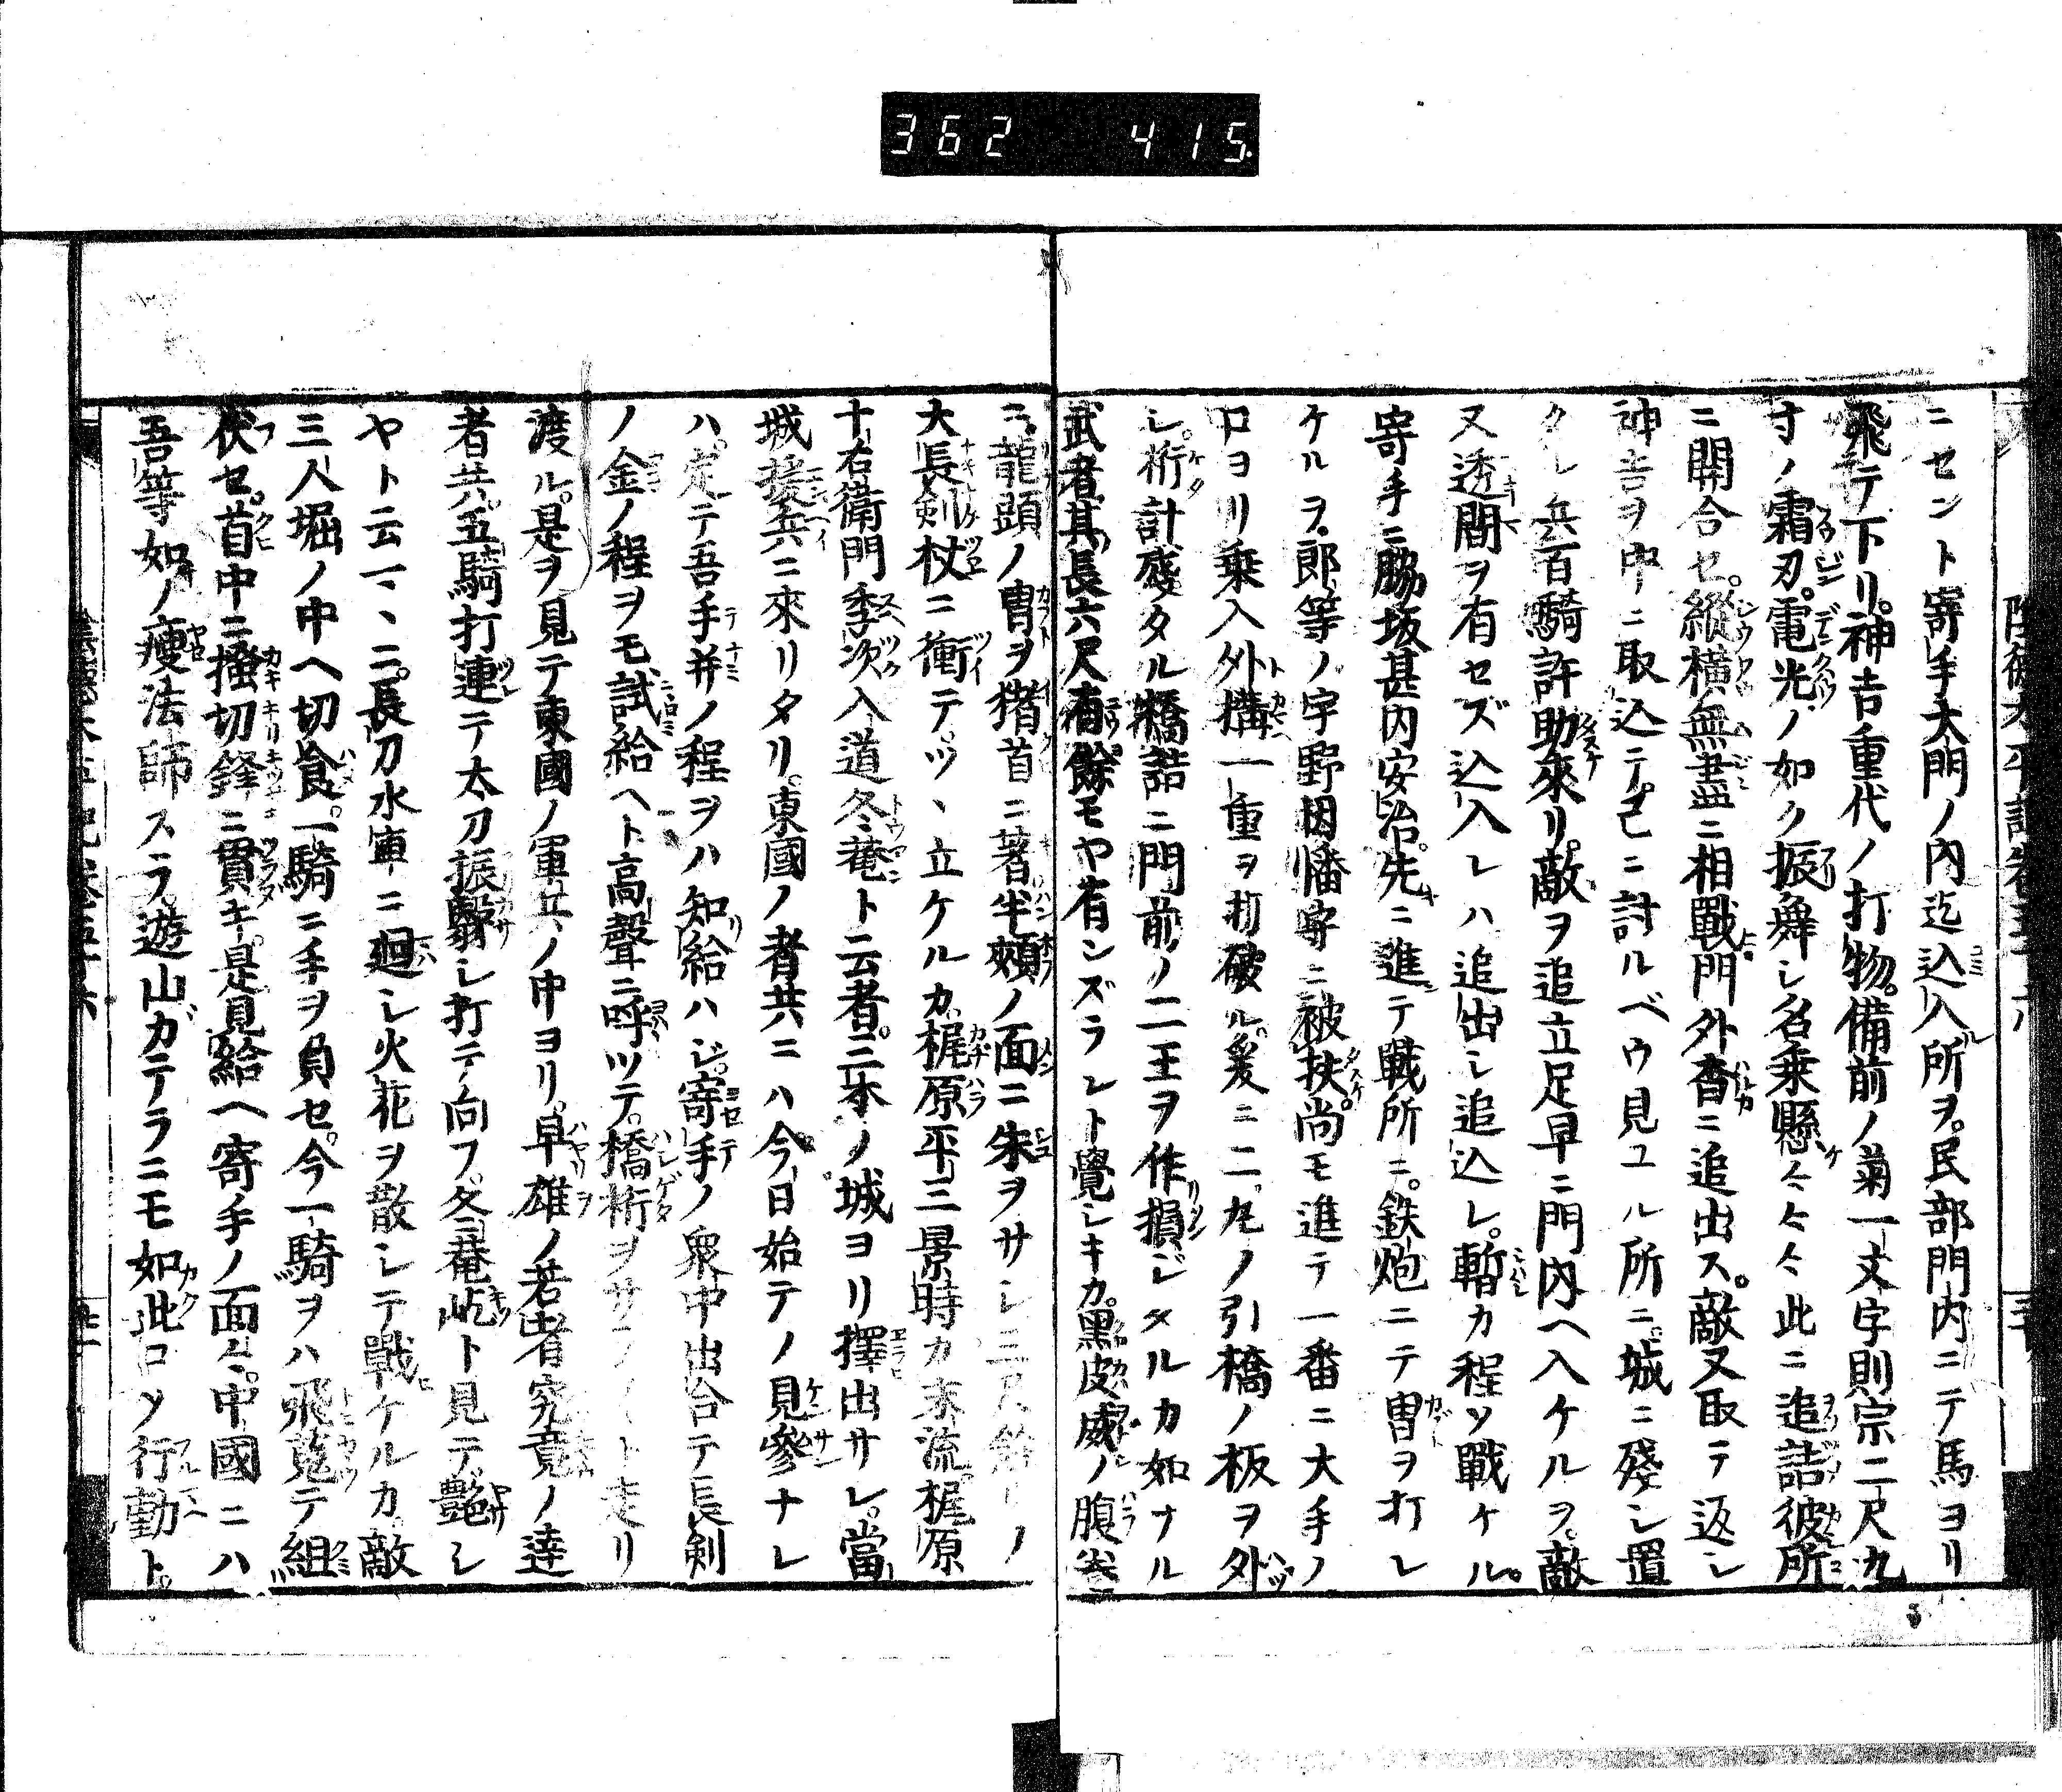 362 415.
ニセント寄手大門ノ内迄込入所ヲ。民部門内ニテ馬ヨリ
飛テ下リ。神吉重代ノ打物。備前ノ菊一文字則宗二尺九
寸ノ霜刃。電光ノ如ク振舞シ名乗懸々々々此ニ追詰彼所
ニ開合セ。縱橫無盡ニ相戰門外杳ニ追出ス。敵又取テ返シ
神吉ヲ中ニ取込テ。已ニ討ルベウ見ユル所ニ。城ニ殘シ置
クレ兵百騎許助來リ。敵ヲ追立足早ニ門內ヘ入ケルヲ。敵
又透間ヲ有セズ込入レハ追出シ追込レ。暫カ程ソ戰ケル。
寄手ニ脇坂甚内安治。先ニ進テ戰所ニ。鉄炮ニテ冑ヲ打レ
ケルヲ。郎等ノ宇野因幡守ニ被扶。尚モ進テ一番ニ大手ノ
口ヨリ乗入外構一重ヲ打破ル。爰ニ二ノ丸ノ引橋ノ板ヲ外
シ。桁計殘タル橋詰ニ門前ノ二王ヲ作損ジタルカ如ナル
武者。其長六尺有餘モヤ有ンズラント覺シキカ。黑皮威ノ腹卷
ニ。龍頭ノ冑ヲ猪首ニ著半頬ノ面ニ朱ヲサシ三尺餘リノ
大長剣杖ニ衝テ。ツヽ立ケルカ。梶原平三景時カ末流。梶原
十右衛門季次入道冬菴ト云者。三木ノ城ヨリ擇出サレ。當
城援兵ニ來リタリ。東國ノ者共ニハ今日始テノ見參ナレ
ハ。定テ吾手并ノ程ヲハ知給ハジ。寄手ノ衆中出合テ長剣
ノ金ノ程ヲモ試給ヘト高聲ニ呼ツテ。橋桁ヲサラ〱ト走リ
渡ル。是ヲ見テ東國ノ軍立ノ中ヨリ。早雄ノ若者究竟ノ達
者共。五騎打連テ太刀振翳シ打テ向フ。冬菴屹ト見テ。艶シ
ヤト云一ヽニ。長刀水車ニ廻シ火花ヲ散シテ戰ケルカ。敵
三人堀ノ中ヘ切食。一騎ニ手ヲ負セ。今一騎ヲハ飛蒐テ組
伏セ。首中ニ搔切鋒ニ貫キ。是見給ヘ寄手ノ面々。中國ニハ
吾等如ノ瘦法師スラ。遊山ガテラニモ如此コソ行動ト。